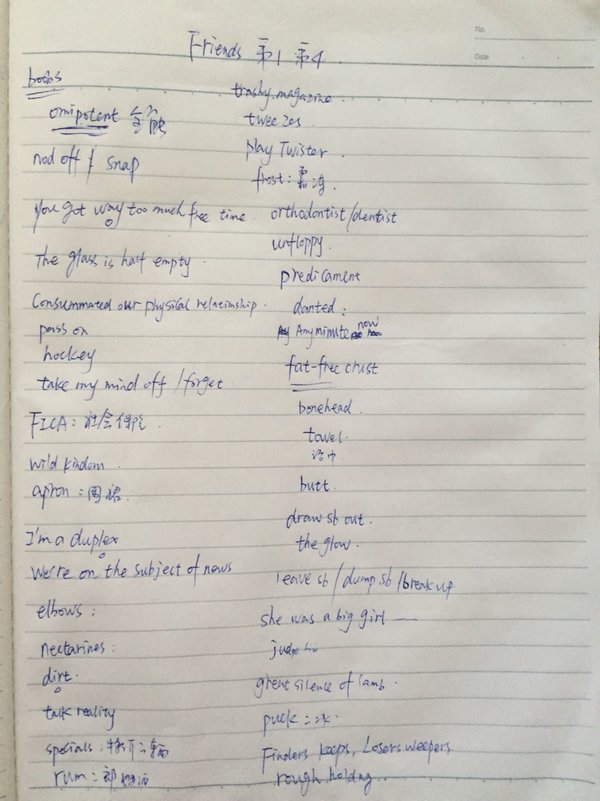 No.
Date
Friends 第1 第4
books
omipotent 全能
nod off / snap
you got way too much free time.
The glass is half empty.
Consummated our physical relationship.
pass on
hockey
take my mind off / forget
FICA: 社会保险.
wild kindom.
apron: 围裙.
I'm a duplex
We're on the subject of news
elbows:
nectarines:
dirt.
talk reality
specials.
rum:
trashy magazine.
tweezes
play Twister.
frost:
orthodontist/dentist
unfloppy.
predicament
danted:
Any minute now
fat-free crust
bonehead.
towel.
浴巾
butt.
draw sb out.
the glow.
leave sb / dump sb / break up
she was a big girl —
great silence of lamb.
puck: 冰.
Finders keeps, Losers weepers
rough holding.